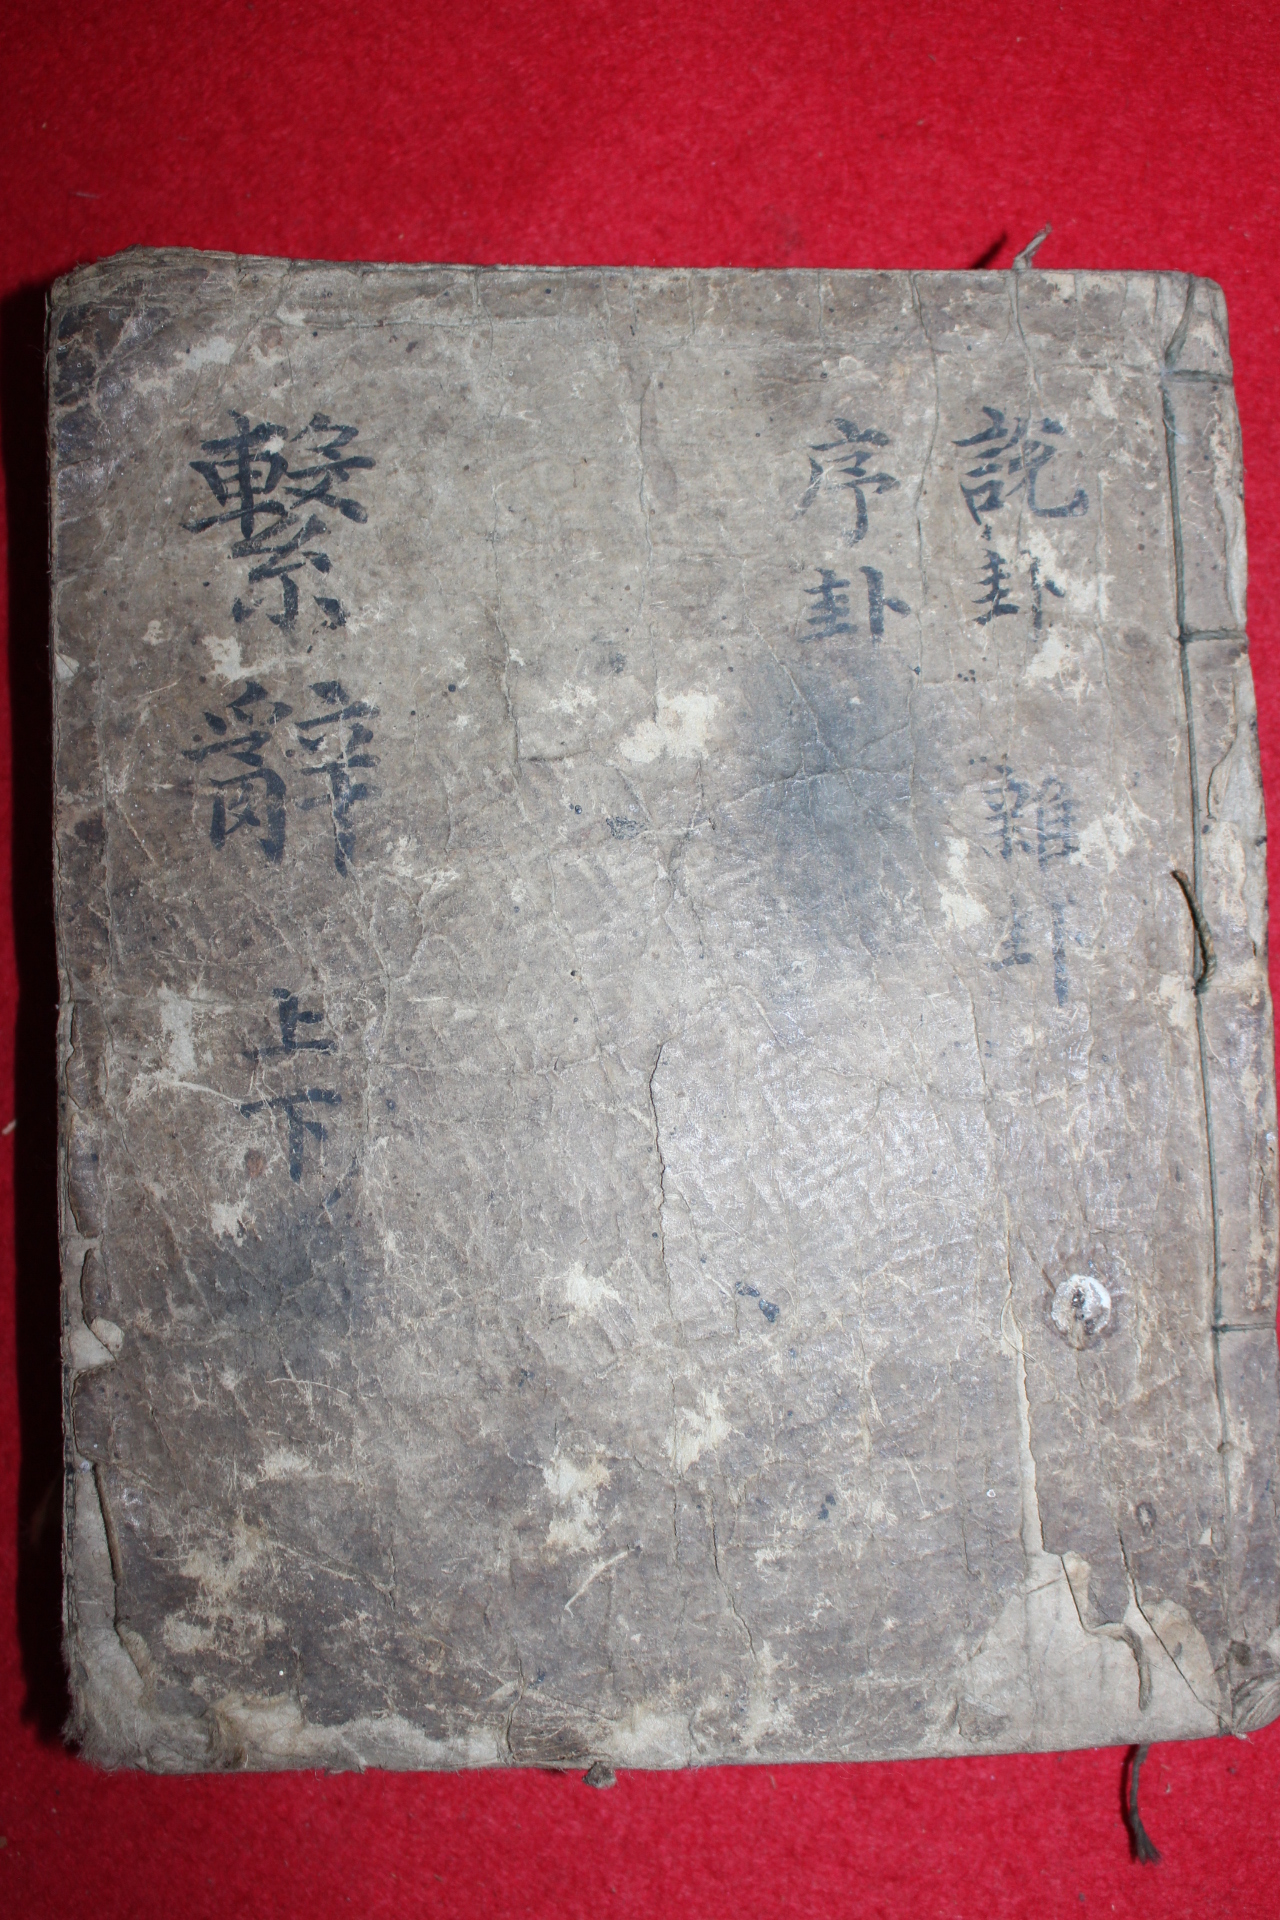 說卦 雜卦
序卦
繫辭 上下